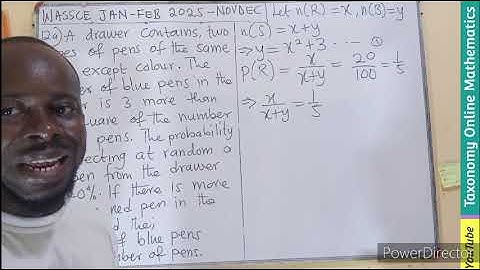 WASSCE JAN-FEB 2025-NOVDEC
12a) A drawer contains, two
es of pens of the same
except colour. The
er of blue pens in the
r is 3 more than
uare of the number
pens. The probability
ecting at random a
en from the drawer
0%. If there is more
ned pen in the
d the;
f blue pens
mber of pens.
Let n(R) = x, n(B) = y
n(S) = x+y
⇒ y = x² + 3 ---- ①
P(R) = x/(x+y) = 20/100 = 1/5
⇒ x/(x+y) = 1/5
YouTube Taxonomy Online Mathematics
PowerDirector